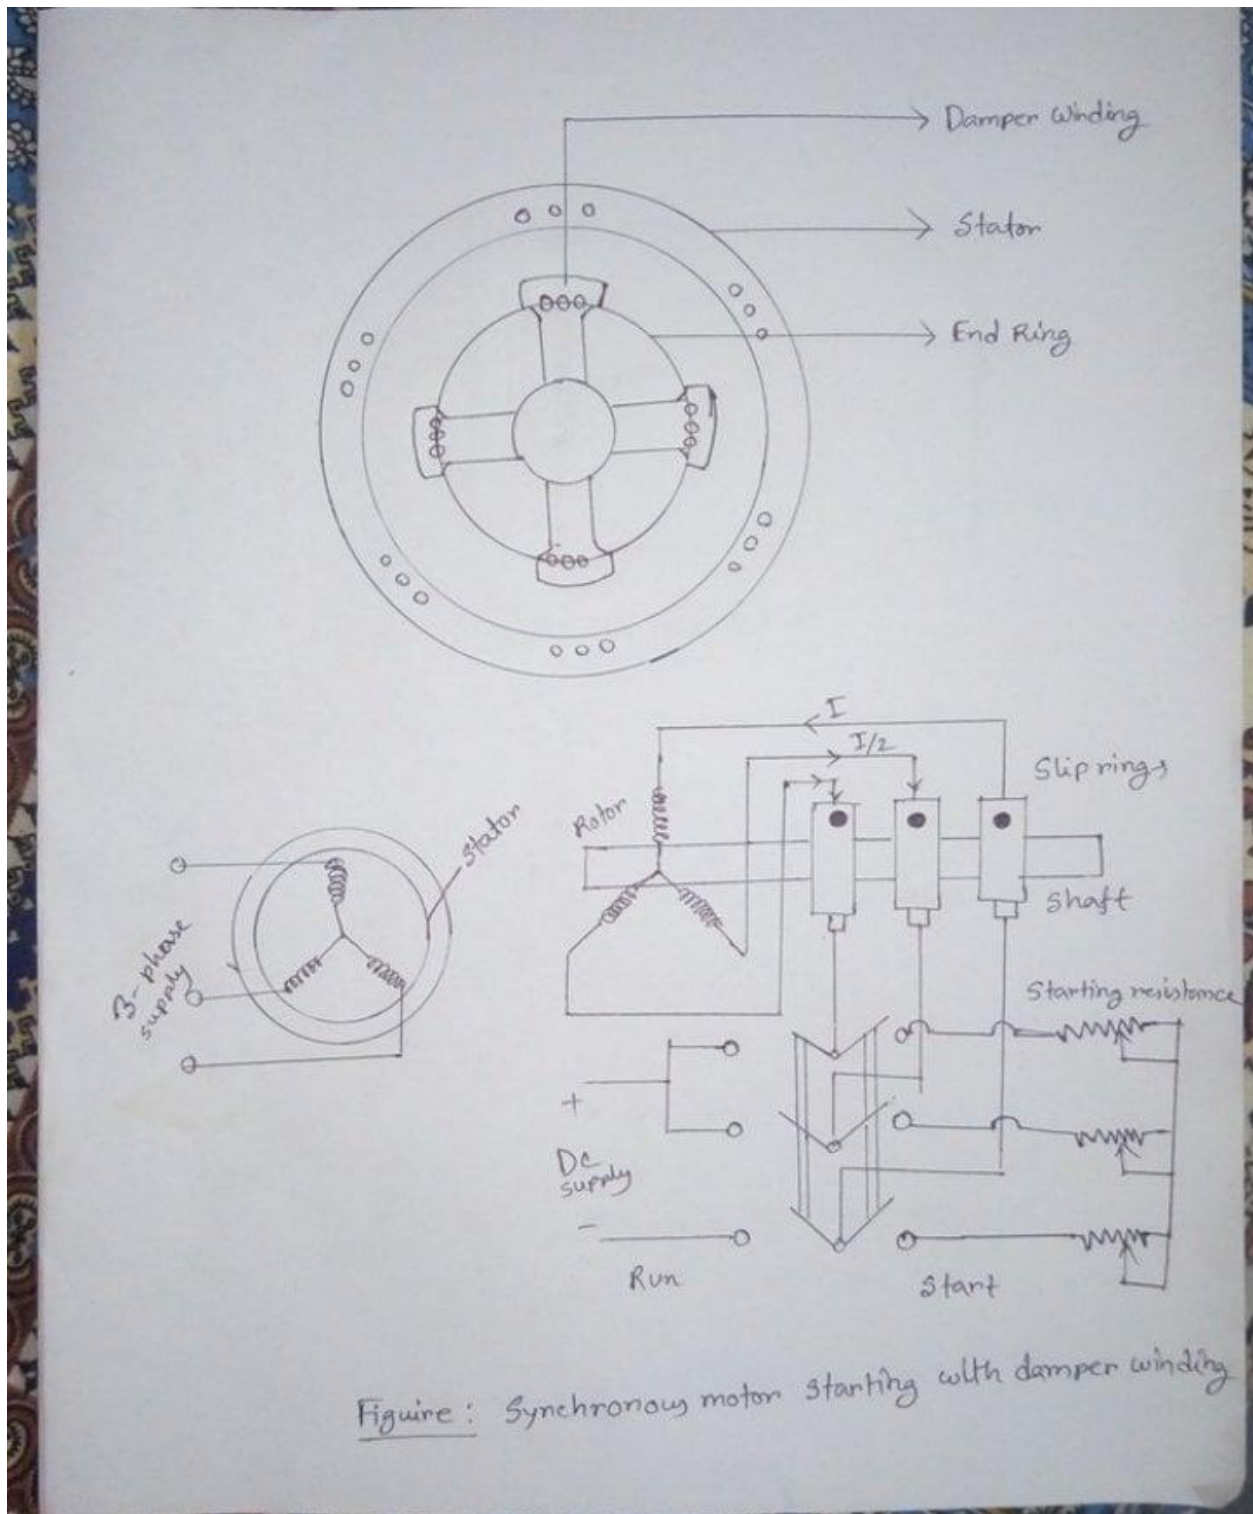 Damper Winding
Stator
End Ring
I
I/2
Slip rings
Rotor
Stator
Shaft
3-phase
supply
Starting resistance
+
DC
supply
-
Run
Start
Figuire: Synchronous motor starting with damper winding